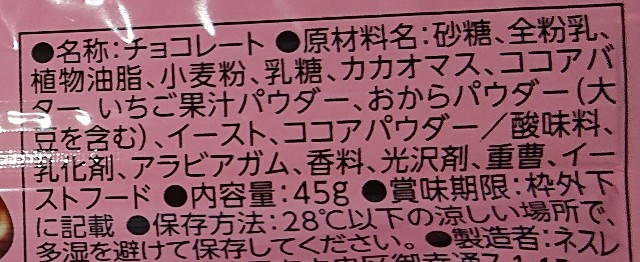 ●名称:チョコレート ●原材料名:砂糖、全粉乳、
植物油脂、小麦粉、乳糖、カカオマス、ココアバ
ター、いちご果汁パウダー、おからパウダー(大
豆を含む)、イースト、ココアパウダー/酸味料、
乳化剤、アラビアガム、香料、光沢剤、重曹、イー
ストフード ●内容量:45g ●賞味期限:枠外下
に記載 ●保存方法:28℃以下の涼しい場所で、
多湿を避けて保存してください。 ●製造者:ネスレ